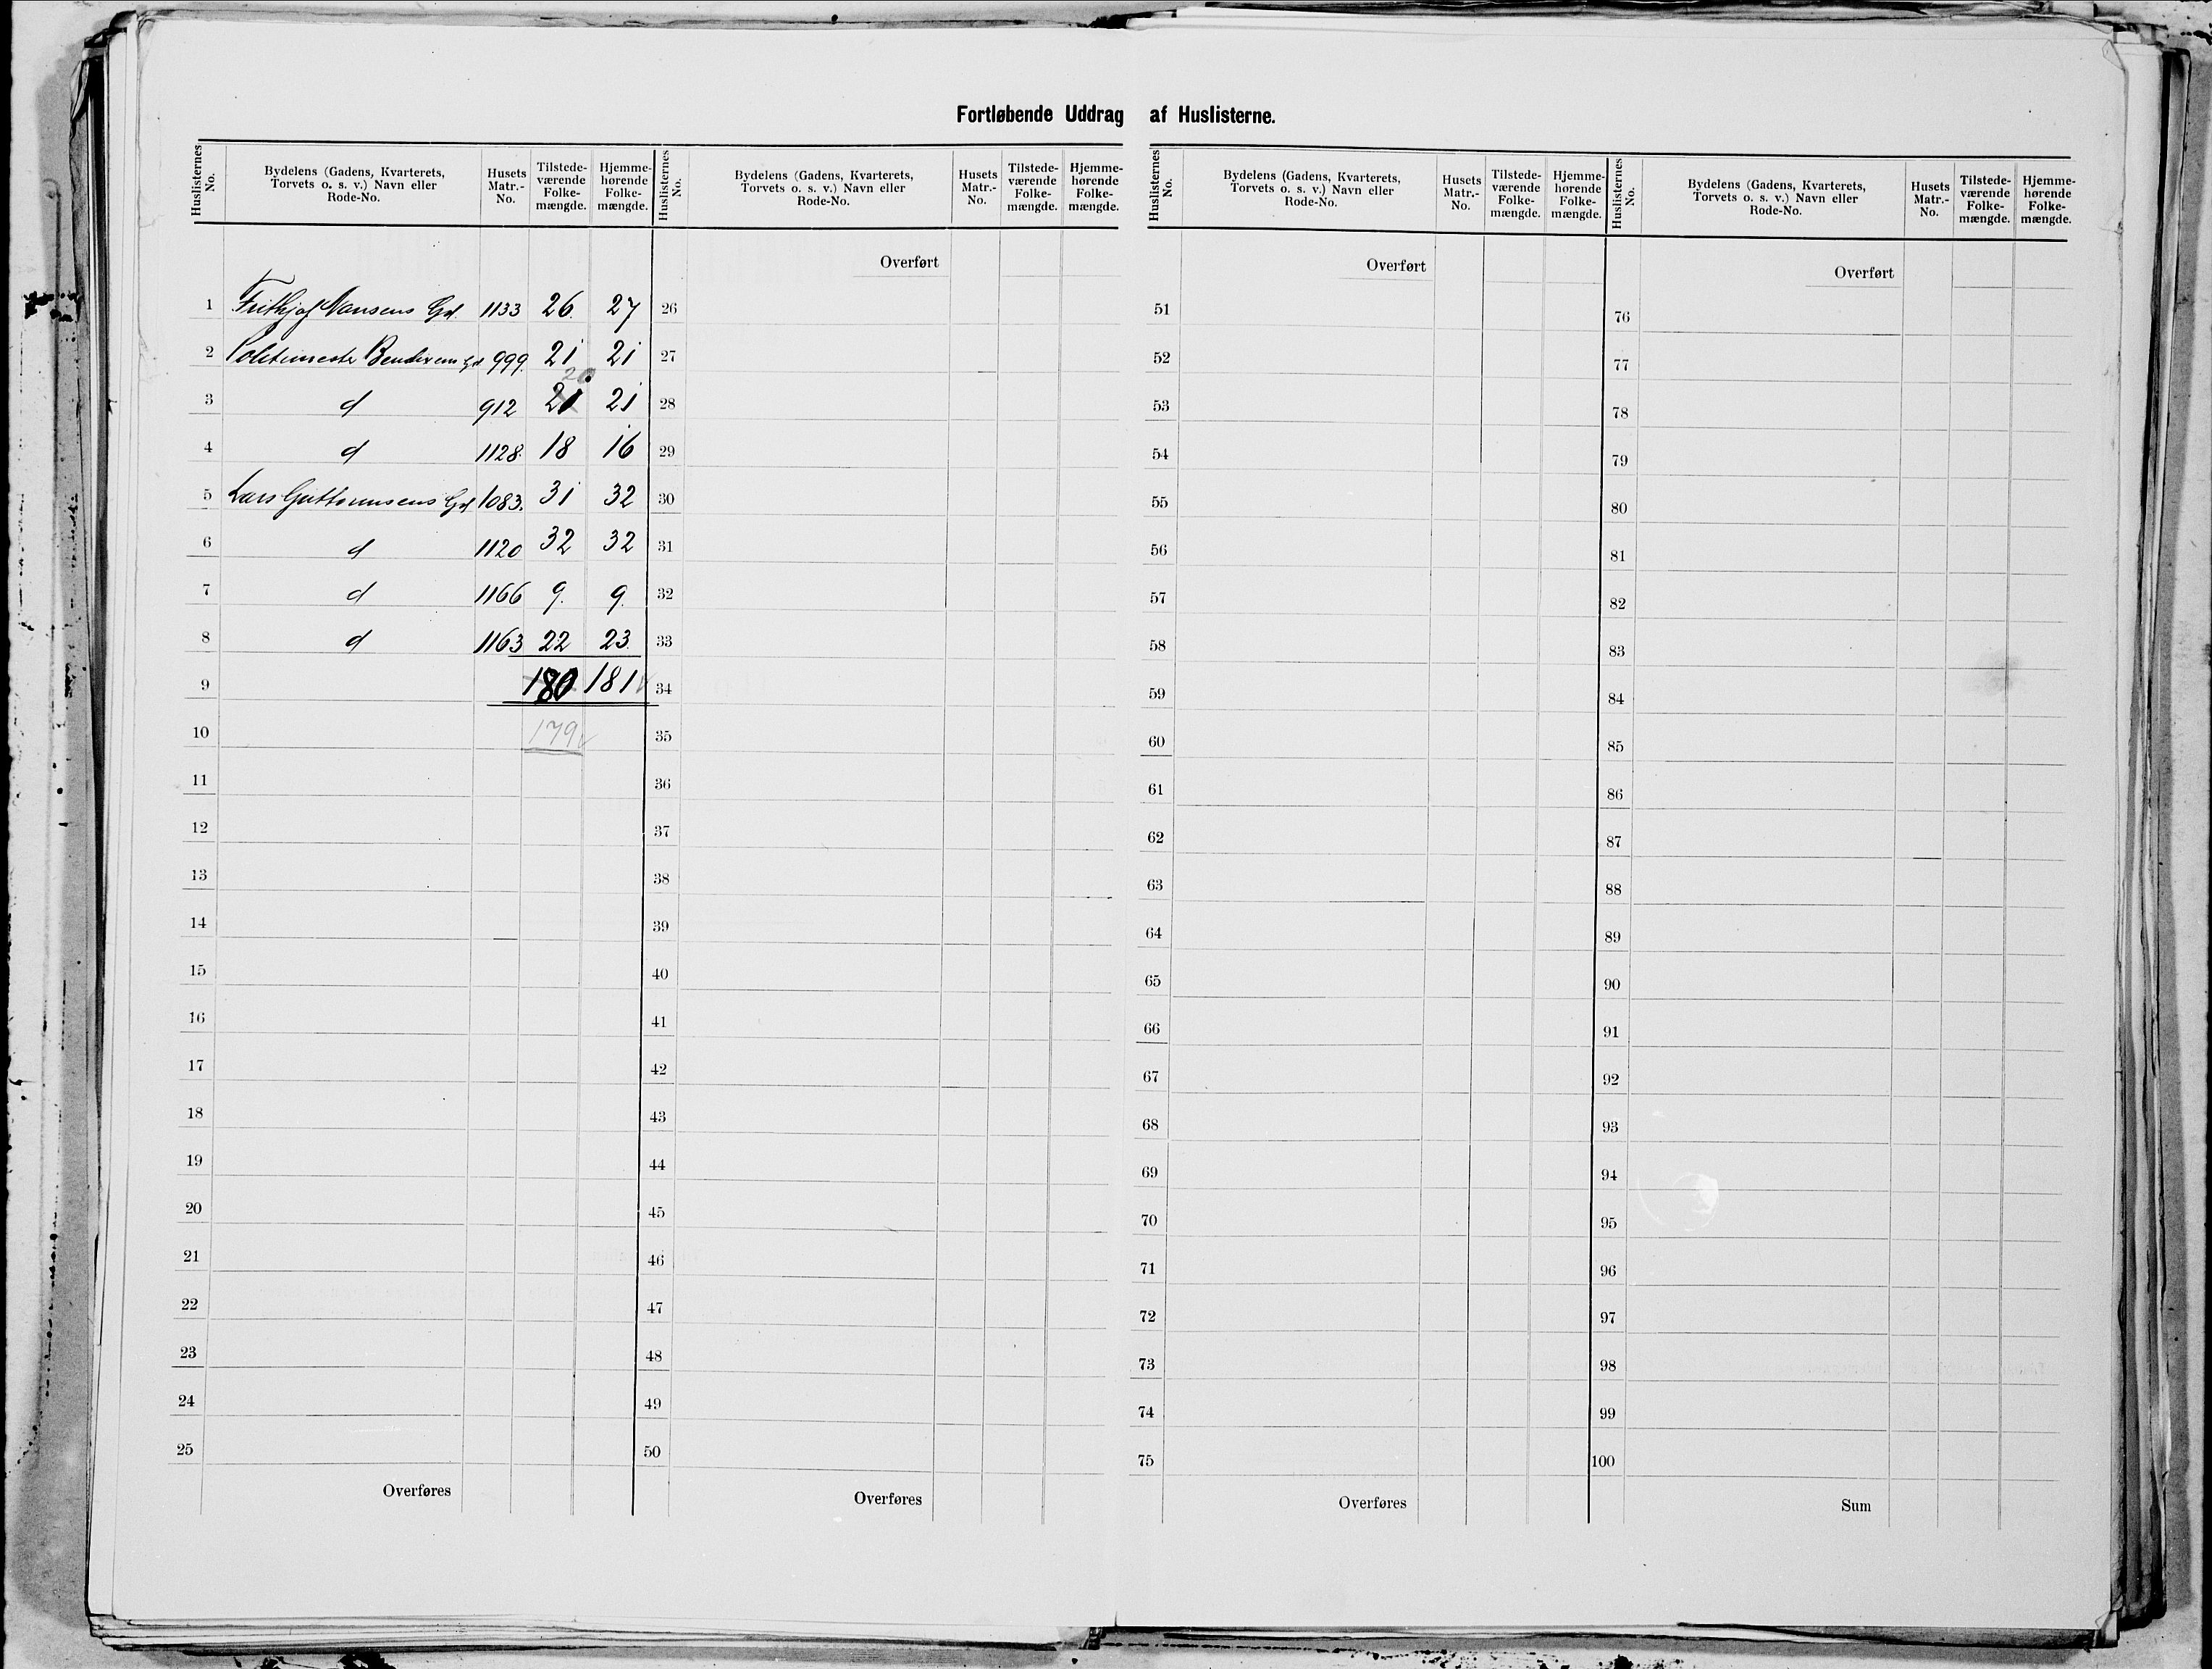 Fortløbende Uddrag af Huslisterne.
Huslisternes No. Bydelens (Gadens, Kvarterets, Torvets o. s. v.) Navn eller Rode-No. Husets Matr.-No. Tilstedeværende Folkemængde. Hjemmehørende Folkemængde.
1 Frithjof Nansens Gd. 1133 26. 27
2 Politimester Bendixens Gd 999. 21 21
20
3 d 912 21 21
4 d 1128. 18 16
5 Lars Guttormsens Gd 1083. 31 32
6 d 1120 32 32
7 d 1166 9. 9.
8 d 1163 22 23.
9 180 181
10 179
11
12
13
14
15
16
17
18
19
20
21
22
23
24
25
Overføres
Huslisternes No. Bydelens (Gadens, Kvarterets, Torvets o. s. v.) Navn eller Rode-No. Husets Matr.-No. Tilstedeværende Folkemængde. Hjemmehørende Folkemængde.
Overført
26
27
28
29
30
31
32
33
34
35
36
37
38
39
40
41
42
43
44
45
46
47
48
49
50
Overføres
Huslisternes No. Bydelens (Gadens, Kvarterets, Torvets o. s. v.) Navn eller Rode-No. Husets Matr.-No. Tilstedeværende Folkemængde. Hjemmehørende Folkemængde.
Overført
51
52
53
54
55
56
57
58
59
60
61
62
63
64
65
66
67
68
69
70
71
72
73
74
75
Overføres
Huslisternes No. Bydelens (Gadens, Kvarterets, Torvets o. s. v.) Navn eller Rode-No. Husets Matr.-No. Tilstedeværende Folkemængde. Hjemmehørende Folkemængde.
Overført
76
77
78
79
80
81
82
83
84
85
86
87
88
89
90
91
92
93
94
95
96
97
98
99
100
Sum